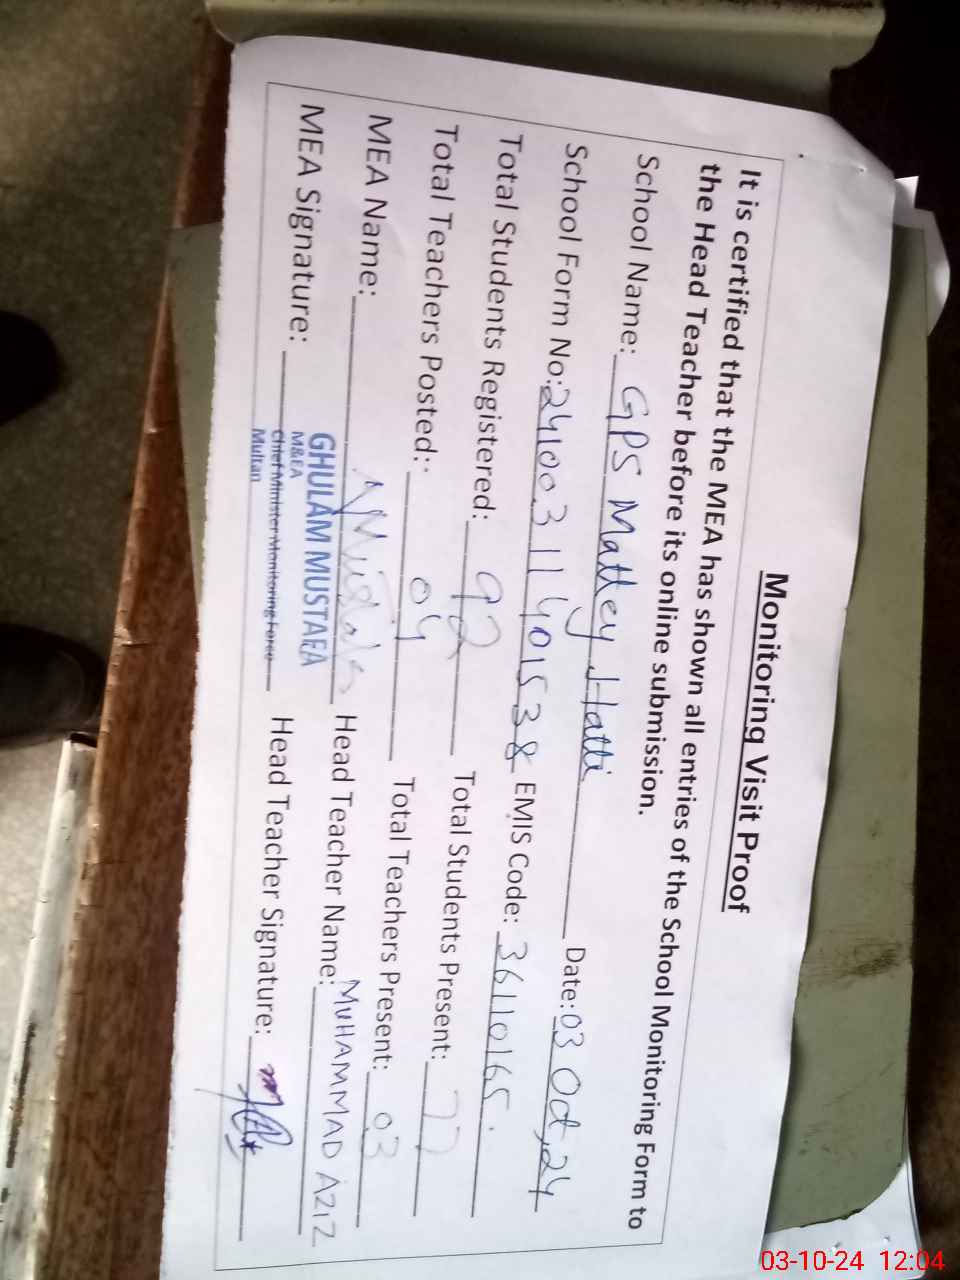 Monitoring Visit Proof
It is certified that the MEA has shown all entries of the School Monitoring Form to
the Head Teacher before its online submission.
School Name: GPS Mattey Hatti Date: 03 Oct, 24
School Form No: 24100311401538 EMIS Code: 36110165.
Total Students Registered: 92 Total Students Present: 77
Total Teachers Posted: 04 Total Teachers Present: 03
MEA Name: Head Teacher Name: MUHAMMAD AZIZ
MEA Signature: Head Teacher Signature:
GHULAM MUSTAFA
M&EA
Chief Minister Monitoring Force
Multan
03-10-24 12:04